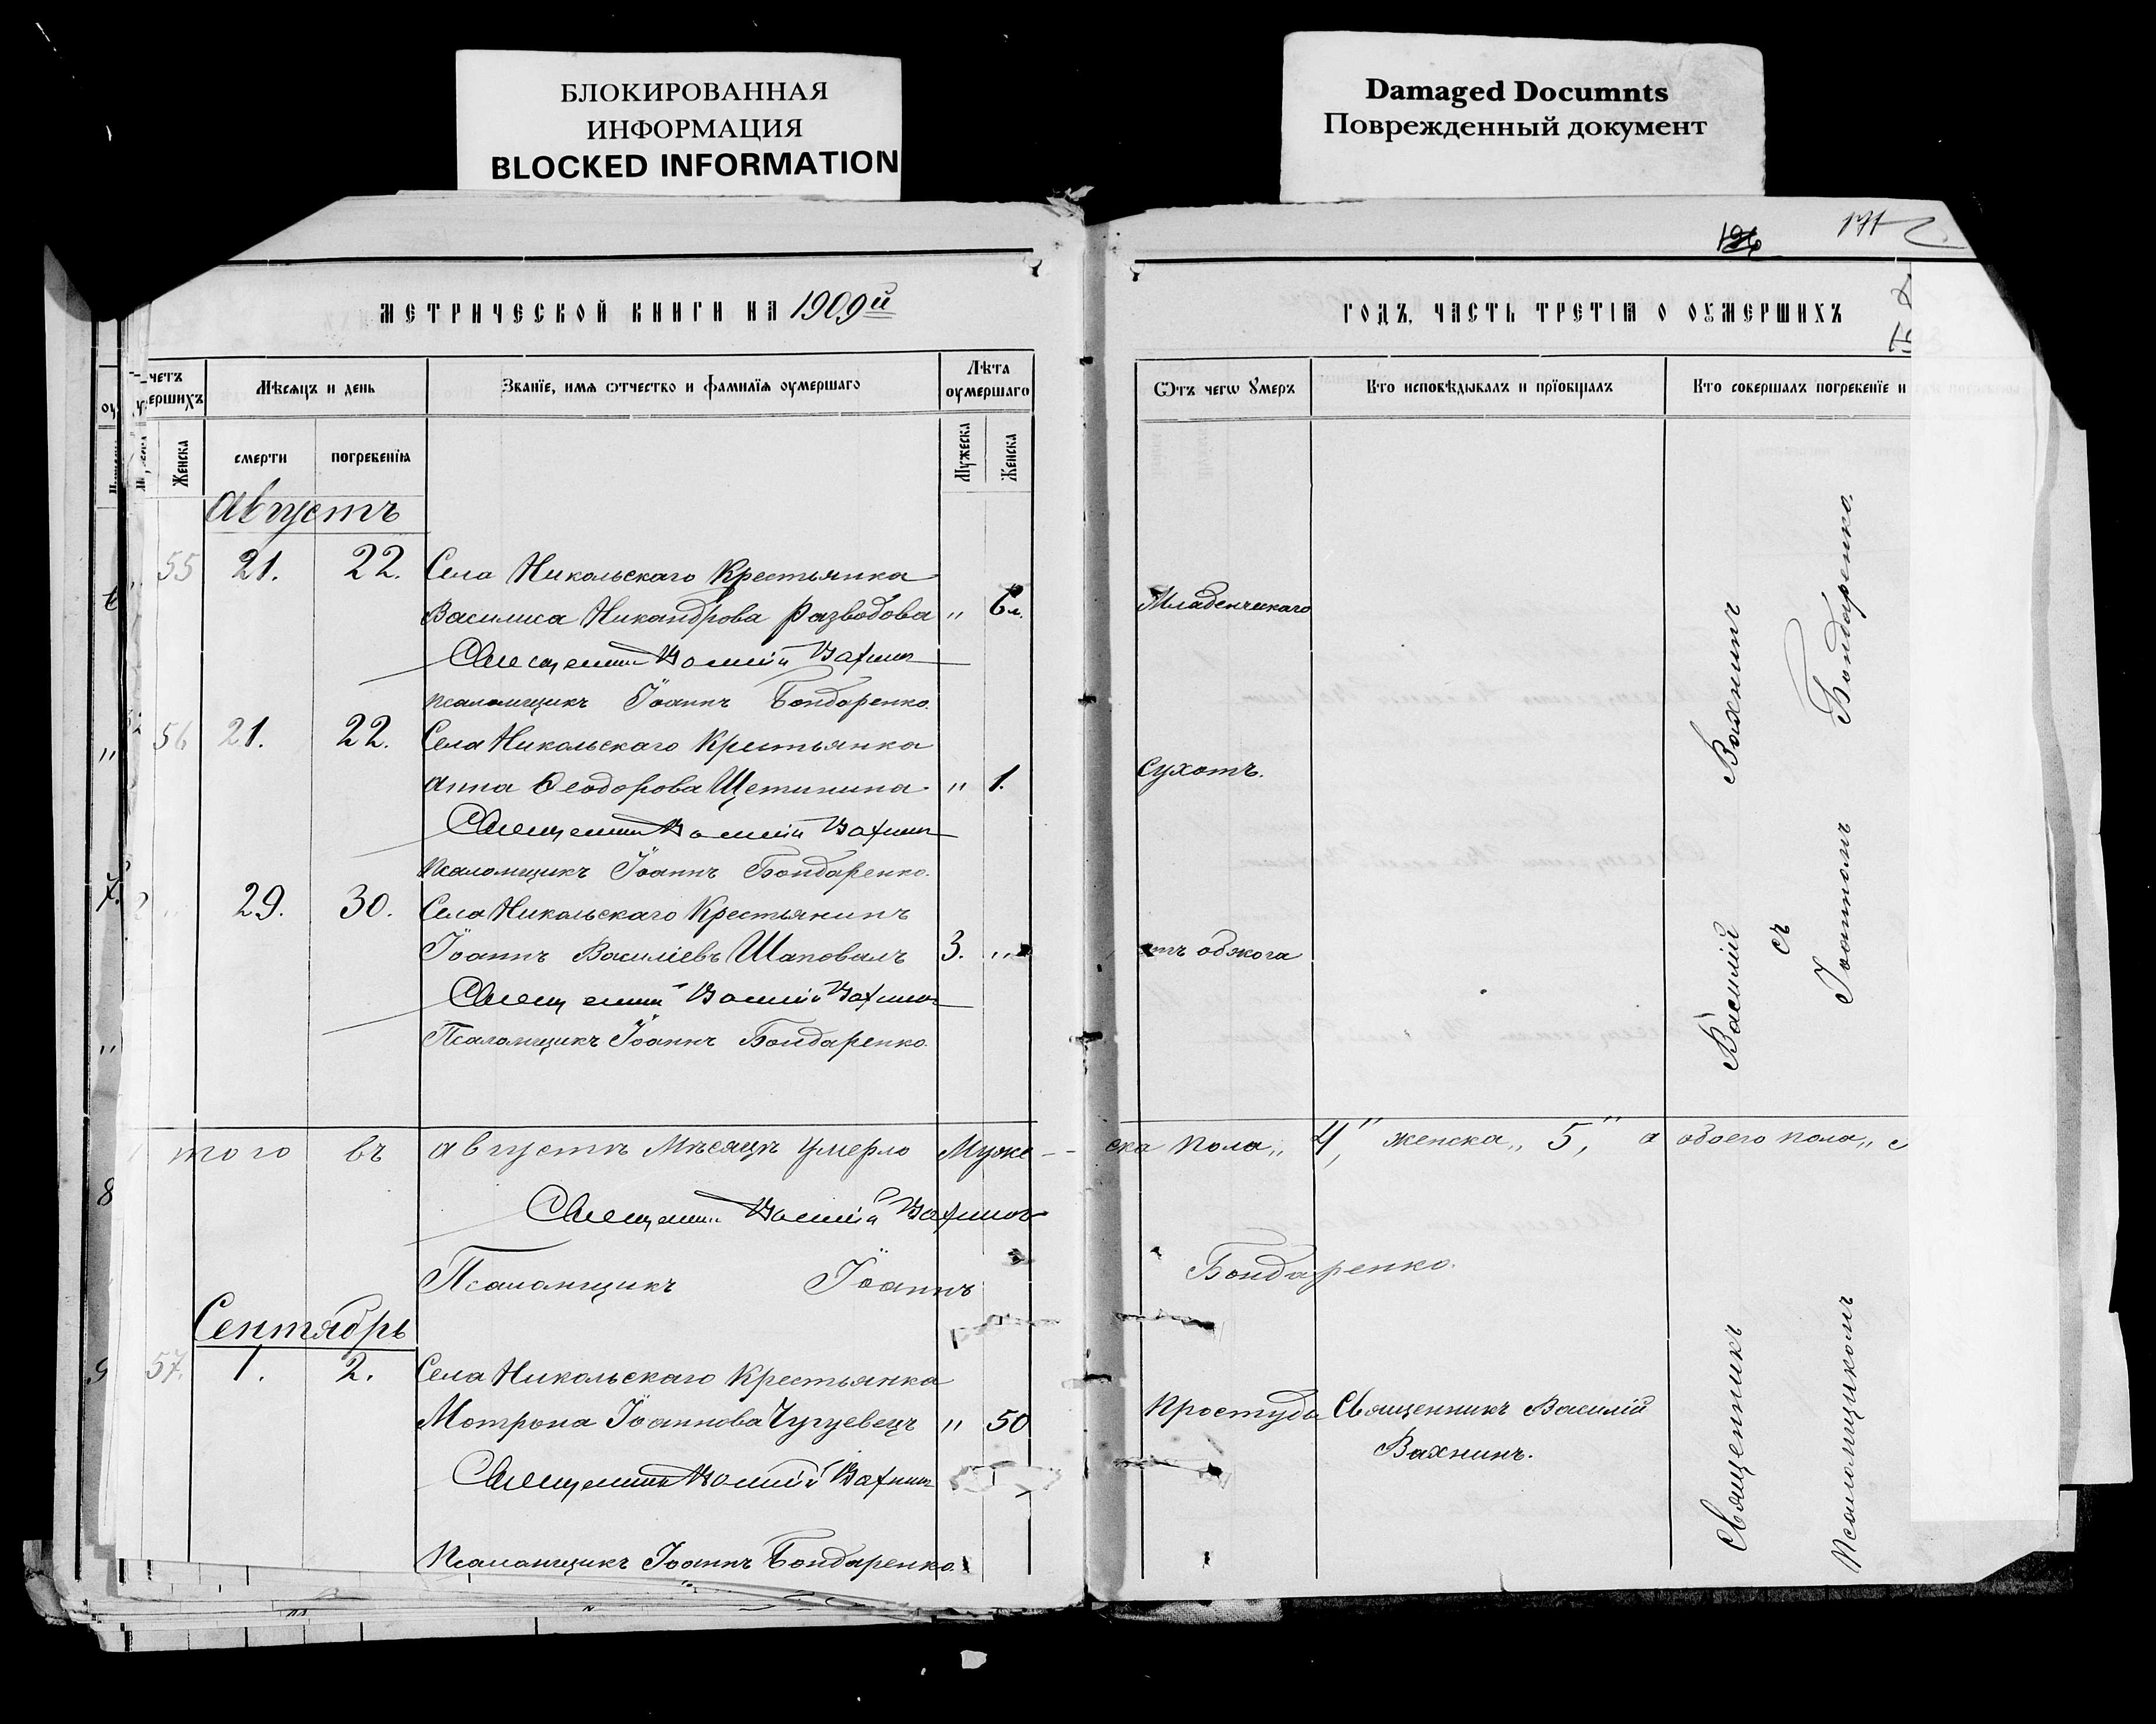 БЛОКИРОВАННАЯ
ИНФОРМАЦИЯ
BLOCKED INFORMATION
Damaged Documnts
Поврежденный документ
126
171
МЕТРИЧЕСКОЙ КНИГИ НА 1909й
ГОДЪ, ЧАСТЬ ТРЕТІѦ О ОУМЕРШИХЪ
четъ
ершихъ
Мѣсяцъ и день
Званїе, имѧ ѿтчество и фамилїѧ оумершаго
Лѣта
оумершаго
Ѿтъ чегѡ Ꙋмеръ
Кто исповѣдывалъ и прїобщалъ
Кто совершалъ погребенїе и
Женска
смерти
погребенїѧ
Мужеска
Женска
Августъ
55 21. 22. Села Никольскаго Крестьянка
Василиса Никандрова Разводова " 6м.
Младенческаго
Священникъ Василій Вахнинъ
псаломщикъ Іоаннъ Бондаренко.
56 21. 22. Села Никольскаго Крестьянка
Анна Ѳеодорова Щетинина " 1.
Сухотъ.
Священникъ Василій Вахнинъ
Псаломщикъ Іоаннъ Бондаренко.
29. 30. Села Никольскаго Крестьянинъ
Іоаннъ Василіевъ Шаповалъ 3. "
отъ обжога
Священникъ Василій Вахнинъ
Псаломщикъ Іоаннъ Бондаренко.
того въ августѣ Мѣсяцѣ умерло Муже-ска пола „ 4," женска „ 5," а обоего пола „
Священникъ Василій Вахнинъ
Псаломщикъ Іоаннъ Бондаренко.
Сентябрь
57. 1. 2. Села Никольскаго Крестьянка
Мотрона Іоаннова Чугуевецъ " 50
Простуды Священникъ Василій
Вахнинъ.
Священникъ Василій Вахнинъ
Псаломщикъ Іоаннъ Бондаренко.
Священникъ Василій Вахнинъ
съ
Псаломщикомъ Іоанномъ Бондаренко.